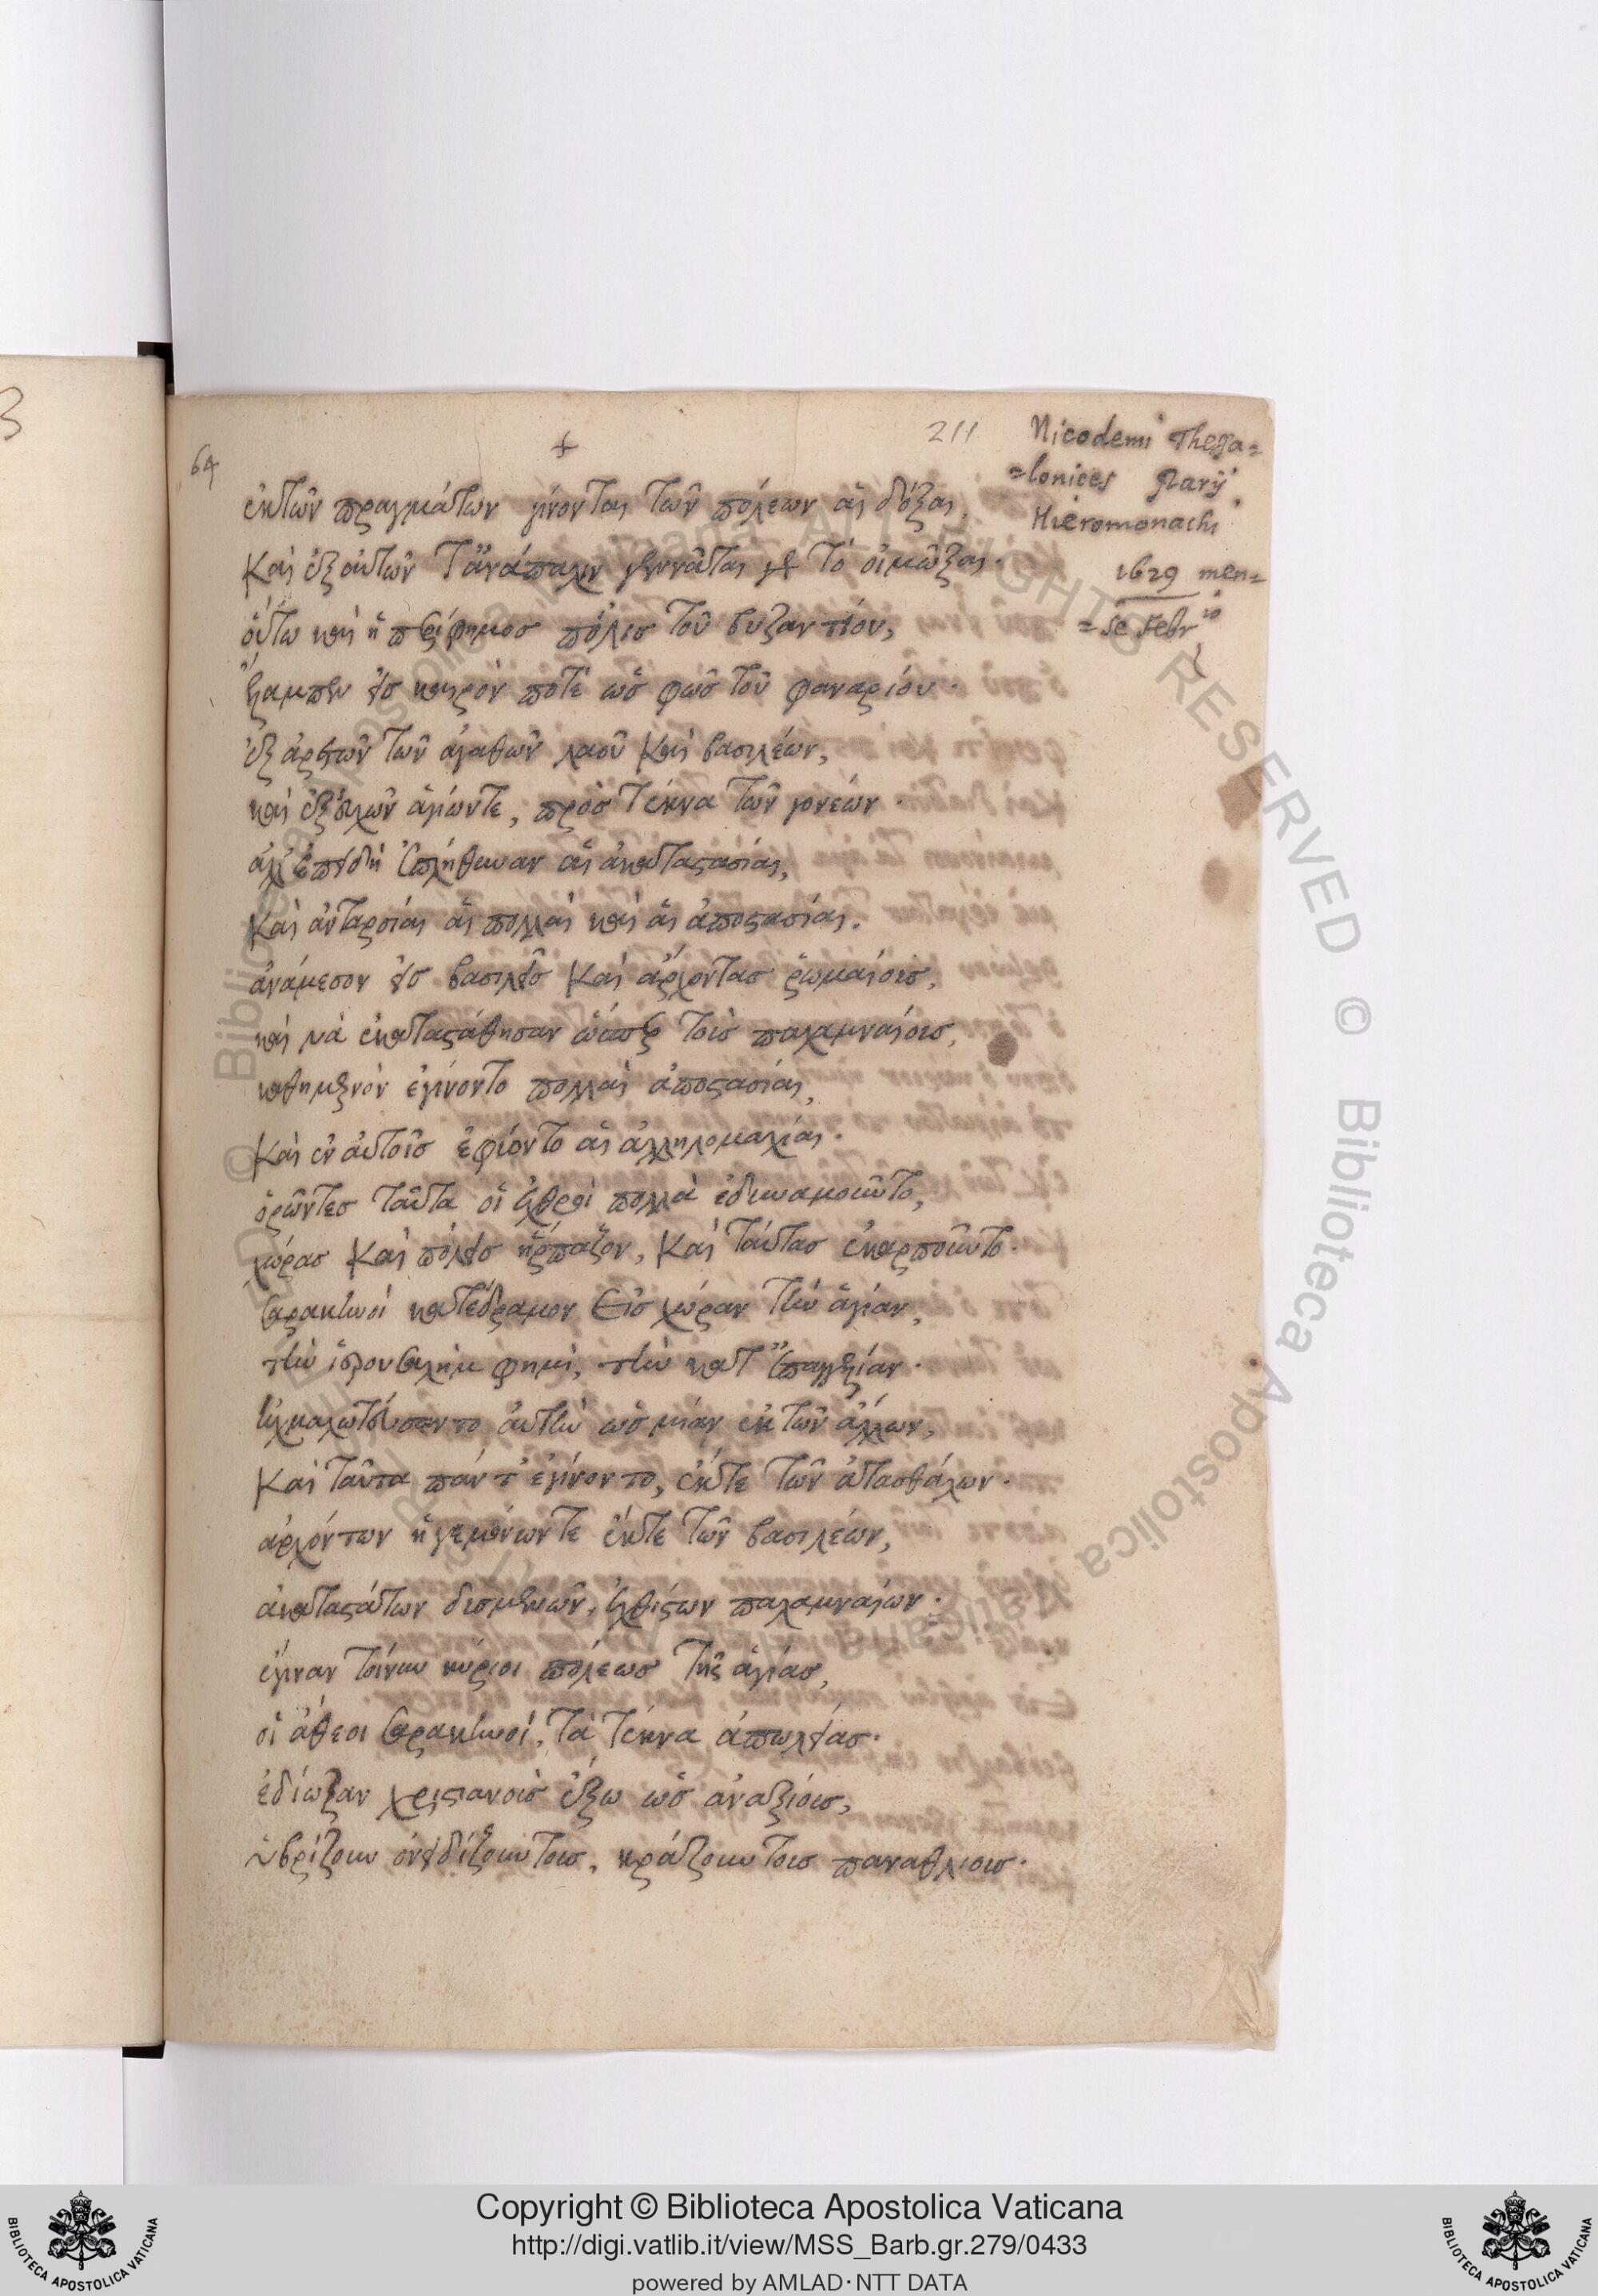 3
64
+
211
Nicodemi Thessa=
=lonices
Hieromonachi
1629 men=
=se febr
ἐκτῶν πραγμάτων γίνονται τῶν πόλεων αἱ δόξαι,
Καὶ ἐξαὐτῶν τἀνάπαλιν γεννᾶται καὶ τὸ οἰμῶξαι.
οὕτω καὶ ἡ περίφημος πόλις τοῦ βυζαντίου,
ἔλαμπεν εἰς καιρόν ποτὲ ὡς φῶς τοῦ φαναρίου.
ἐξ ἀρετῶν τῶν ἀγαθῶν λαοῦ καὶ βασιλέων,
καὶ εὐχῶν ἁγίωντε, πρὸς τέκνα τῶν γονέων.
ἀλλ' ἐπειδὴ ἐπλήθυναν αἱ ἀκαταστασίαι,
Καὶ ἀνταρσίαι αἱ πολλαὶ καὶ αἱ ἀποστασίαι.
ἀνάμεσον εἰς βασιλεῖς καὶ ἄρχοντας ῥωμαίους,
καὶ νὰ ἐκαταστάθησαν ὥσπερ τοὺς παλαμναίους,
καθημερνὸν ἐγίνοντο πολλαὶ ἀποστασίαι,
Καὶ ἐν αὐτοῖς ἐφύοντο αἱ ἀλληλομαχίαι.
ὁρῶντες ταῦτα οἱ ἐχθροὶ πολλὰ ἐδυναμοῦντο,
χώρας καὶ πόλεις ἥρπαζον, καὶ ταύτας ἐκαρποῦντο.
Σαρακηνοί κατέδραμον εἰς χώραν τὴν ἁγίαν,
τὴν ἱερουσαλὴμ φημὶ, τὴν κατ' ἐπαγγελίαν.
ἠχμαλωτεύσαντο αὐτὴν ὡς μίαν ἐκ τῶν ἄλλων,
Καὶ ταῦτα πάντ' ἐγίνοντο, ἐκτε τῶν ἀτασθάλων.
ἀρχόντων ἡγεμόνωντε ἐκτε τῶν βασιλέων,
ἀκαταστάτων δυσμενῶν, ἐχθίστων παλαμναίων.
ἐγιναν τοίνυν κύριοι πόλεως τῆς ἁγίας,
οἱ ἄθεοι Σαρακηνοί, τὰ τέκνα ἀπωλείας.
ἐδίωξαν χριστιανοὺς ἔξω ὡς ἀναξίους,
ὑβρίζουν ὀνειδίζουντους, κράζουντους παναθλίους.
Copyright © Biblioteca Apostolica Vaticana
http://digi.vatlib.it/view/MSS_Barb.gr.279/0433
powered by AMLAD·NTT DATA
BIBLIOTECA APOSTOLICA VATICANA
BIBLIOTECA APOSTOLICA VATICANA